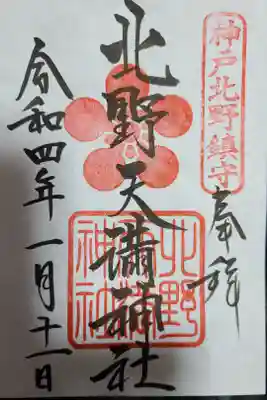 神戸北野鎮守
奉拝
北野天満神社
北野
神社
令和四年一月十一日